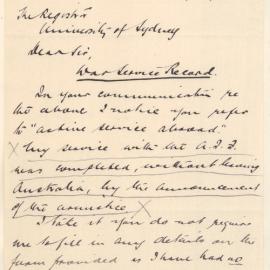 The Registrar
University of Sydney
Dear Sir,
War Service Record.
In your communication re
the above I notice you refer
to "active service abroad."
My service with the A.I.F.
was completed, without leaving
Australia, by the announcement
of the armistice.
I take it you do not require
me to fill in any details on the
form provided as I have had no